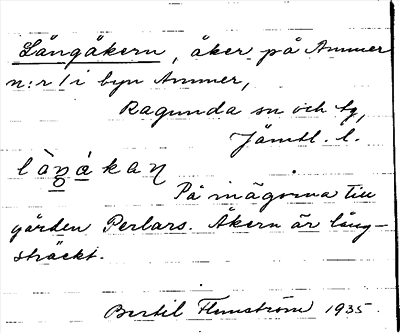 Långåkern, åker på Ammer
n:r 1 i byn Ammer,
Ragunda sn och tg,
Jämtl. l.
là̱ŋá̱kaɳ
På inägorna till
gården Perlars. Åkern är lång-
sträckt.
Bertil Flemström 1935.